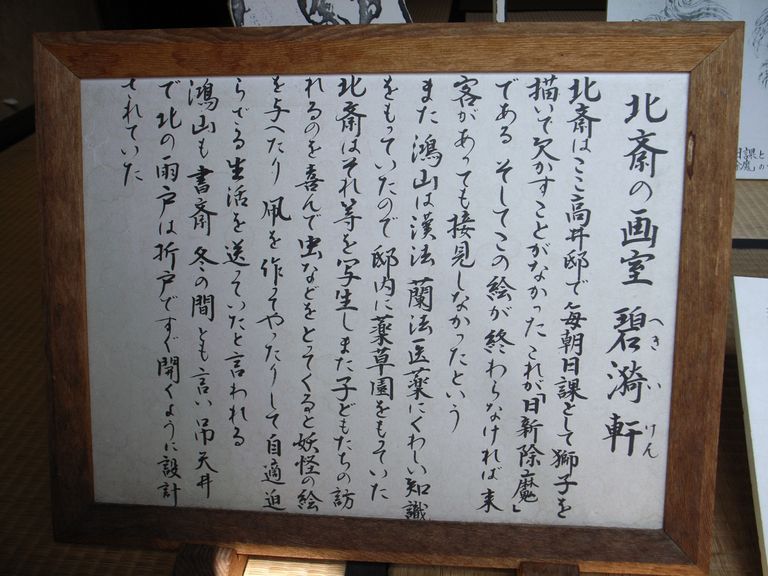 北斎の画室 碧漪軒
へきいけん
北斎はここ高井邸で毎朝日課として獅子を
描いて欠かすことがなかった これが「日新除魔」
である そしてこの絵が終わらなければ来
客があっても接見しなかったという
また 鴻山は漢法 蘭法医薬にくわしい知識
をもっていたので 邸内に薬草園をもっていた
北斎はそれ等を写生しまた子どもたちの訪
れるのを喜んで虫などをとってくると妖怪の絵
を与へたり 凧を作ってやったりして自適迫
らざる生活を送っていたと言われる
鴻山も書斎 冬の間とも言い 吊天井
で北の雨戸は折戸ですぐ開くように設計
されていた